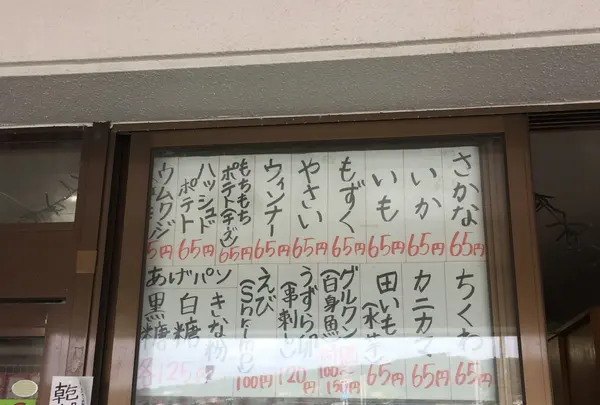 さかな 65円
いか 65円
いも 65円
もずく 65円
やさい 65円
ウィンナー 65円
もちもちポテト(チーズ) 65円
ハッシュドポテト 65円
ウムクジ 5円
ちくわ 65円
カニカマ 65円
田いも(水芋) 65円
グルクン(白身魚) 100円〜150円
うずら卵(串刺し) 120円
えび(Shrimp) 100円
あげパン
きいな粉
白糖
黒糖
125円
乾